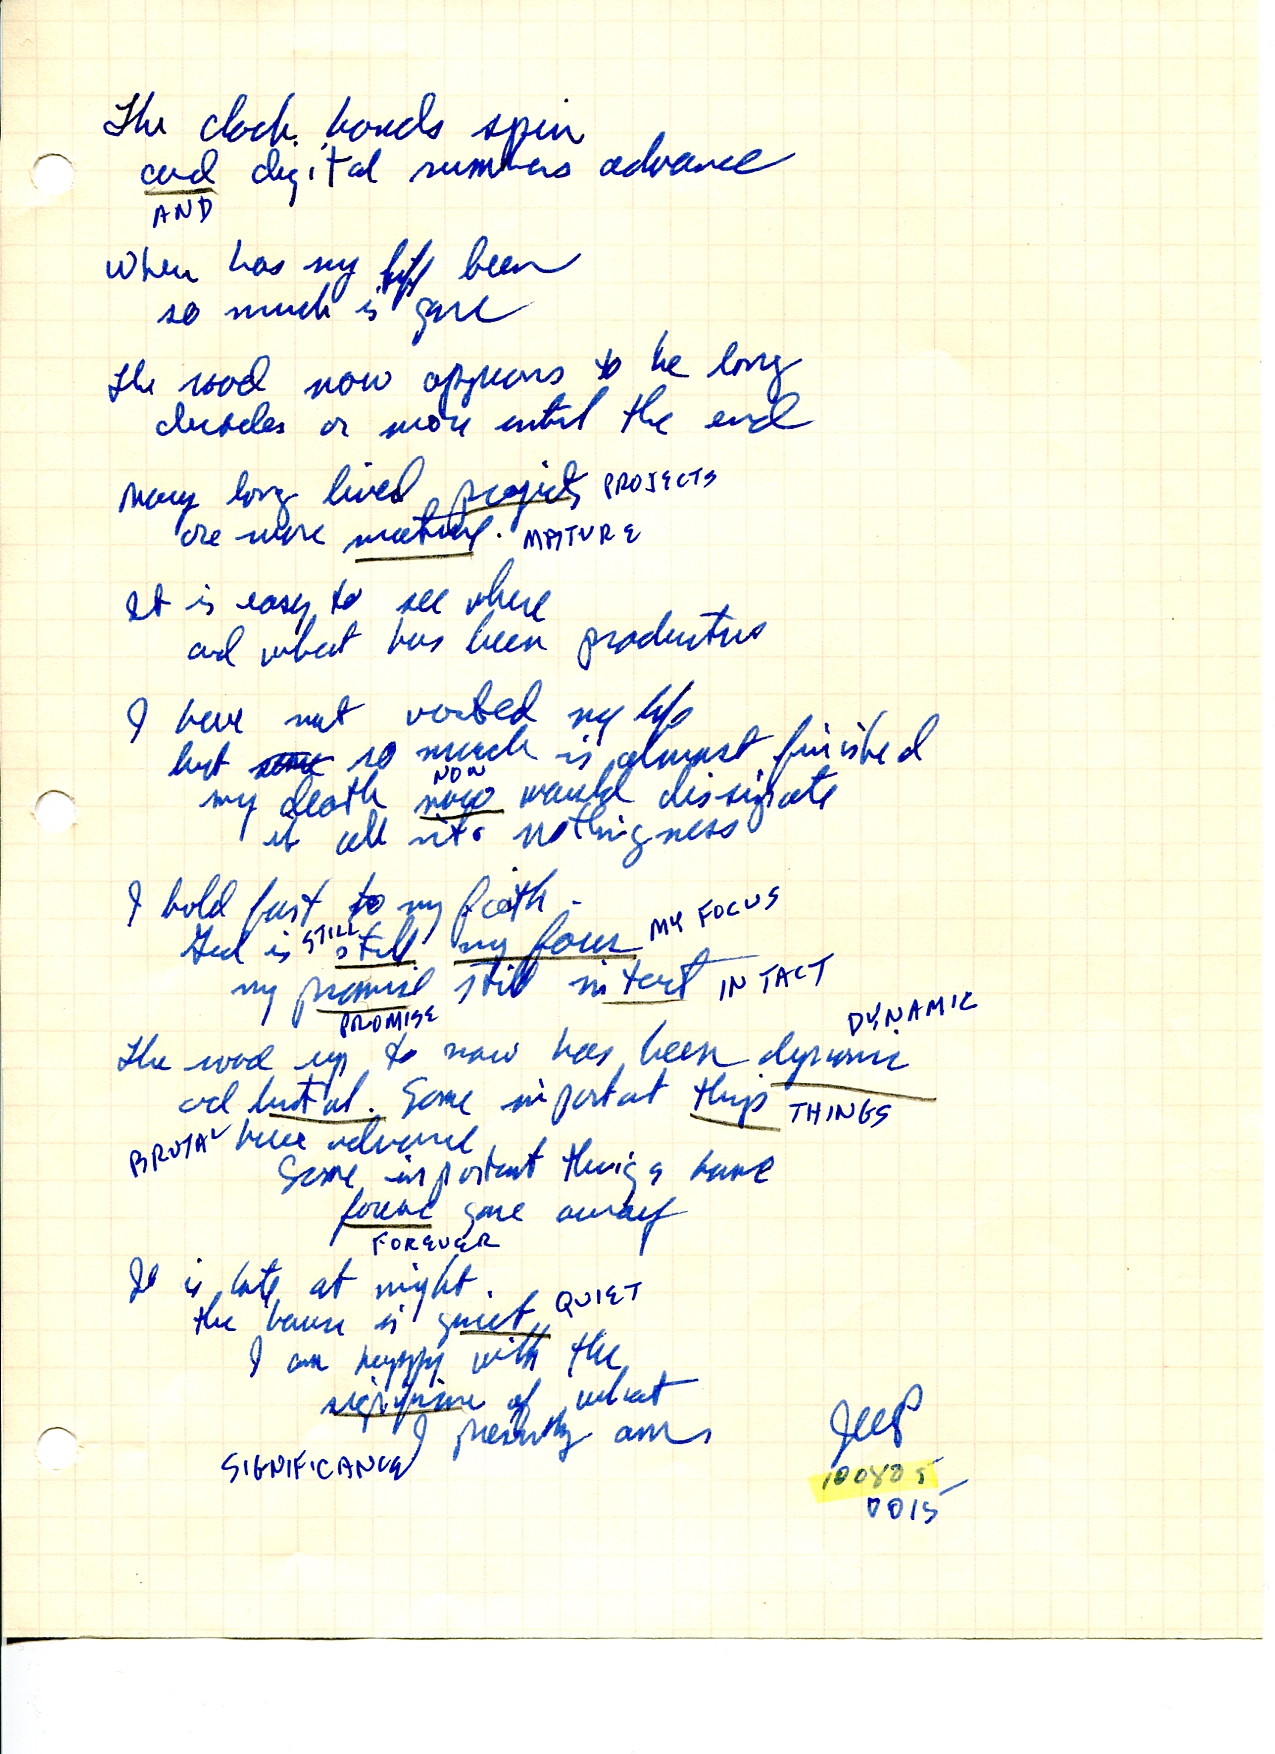 The clock hands spin
and digital numbers advance
AND
When has my life been
so much is gone
The road now appears to be long
decades or more until the end
Many long lived projects PROJECTS
are more mature. MATURE
It is easy to see where
and what has been productive
I have not wasted my life
but so much is almost finished
NOW
my death now would dissipate
it all into nothingness
I hold fast to my faith.
God is STILL still my focus MY FOCUS
my promise still in tact IN TACT
PROMISE
DYNAMIC
The road up to now has been dynamic
and brutal. Some important things THINGS
BRUTAL have advance
Some important things have
forever gone away
FOREVER
It is late at night.
the house is quiet QUIET
I am happy with the
significance of what
I presently am
SIGNIFICANCE
JEEP
100805
0015